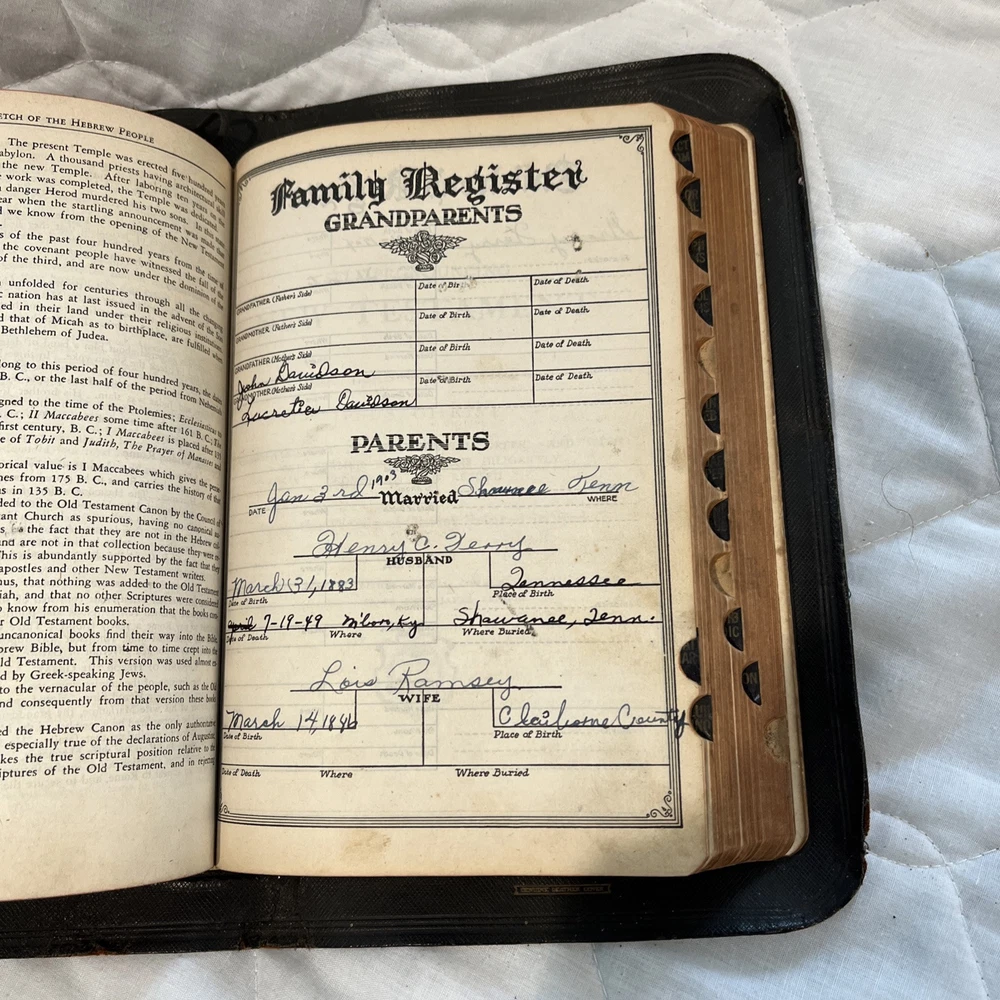 ETCH OF THE HEBREW PEOPLE
The present Temple was erected five hundred
abylon. A thousand priests having architectural
the new Temple. After laboring ten years on
e work was completed, the Temple was dedicated.
danger Herod murdered his two sons.
ear when the startling announcement was made
we know from the opening of the New
s of the past four hundred years from the time of
the covenant people have witnessed the fall of the
of the third, and are now under the dominion of
unfolded for centuries through all the
c nation has at last issued in the advent of the
ed in their land under their religious institutions
d that of Micah as to birthplace, are fulfilled when
Bethlehem of Judea.
ong to this period of four hundred years, the
B. C., or the last half of the period from
gned to the time of the Ptolemies; Ecclesiasticus
C.; II Maccabees some time after 161 B. C.; The
first century, B. C.; I Maccabees is placed after 135
e of Tobit and Judith, The Prayer of Manasses and
orical value is I Maccabees which gives the
nes from 175 B. C., and carries the history of
us in 135 B. C.
ded to the Old Testament Canon by the Council of
ant Church as spurious, having no canonical
the fact that they are not in the Hebrew
and are not in that collection because they were
This is abundantly supported by the fact that
apostles and other New Testament writers.
nus, that nothing was added to the Old Testament
iah, and that no other Scriptures were considered
o know from his enumeration that the books
r Old Testament books.
uncanonical books find their way into the Bible.
brew Bible, but from time to time crept into the
ld Testament. This version was used almost
d by Greek-speaking Jews.
to the vernacular of the people, such as the Old
and consequently from that version these books
ed the Hebrew Canon as the only authoritative
especially true of the declarations of Augustine
kes the true scriptural position relative to the
iptures of the Old Testament, and in rejecting
Family Register
GRANDPARENTS
GRANDFATHER (Father's Side) Date of Bir Date of Death
GRANDMOTHER (Father's Side) Date of Birth Date of Death
GRANDFATHER (Mother's Side) Date of Birth Date of Death
John Davidson
GRANDMOTHER (Mother's Side) Date of Birth Date of Death
Lucretia Davidson
PARENTS
Jan 3rd 1903 Married Shawnee Tenn
DATE WHERE
Henry C. Terry
HUSBAND
March 31, 1883 Tennessee
Date of Birth Place of Birth
7-19-49 Ky. Shawanee, Tenn.
Date of Death Where Where Buried
Lois Ramsey
WIFE
March 14, Claiborne County
Date of Birth Place of Birth
Date of Death Where Where Buried